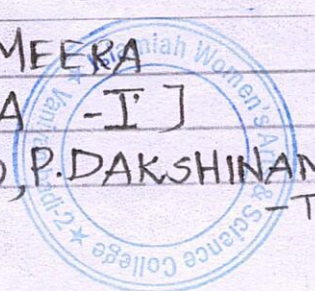 MEERA
A -I ]
), P. DAKSHINAN
-T
Islamiah Women's Arts & Science College
Vaniyambadi-2